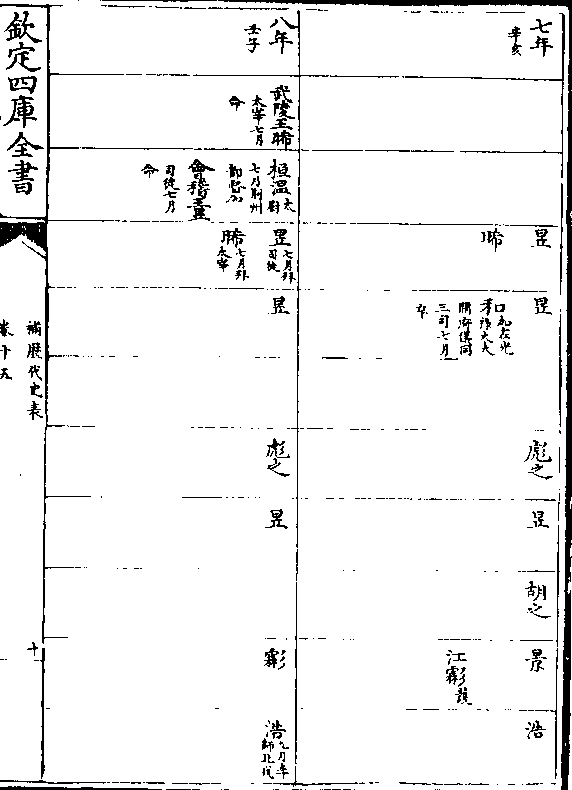 七年
辛亥
昱
晞
昱
開府儀同
三司七月
卒
彪之
昱
胡之
景
江霦護
浩
八年
壬子
武陵王晞
太宰七月
命
桓温太尉
七月荆州
都督加
會稽王昱
司徒七月
命
昱七月拜
司徒
晞七月拜
太宰
昱
彪之
昱
霦
浩九月率
師北伐
欽定四庫全書
補歷代史表
卷十五
十